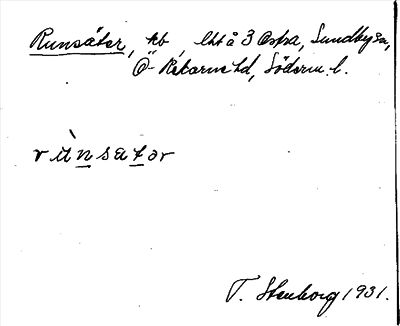 Runsäter, kb, lht å 3 Östra, Sundby sn,
Ö-Rekarne hd, Söderm. l.
rùnsatər
T. Stenborg 1931.